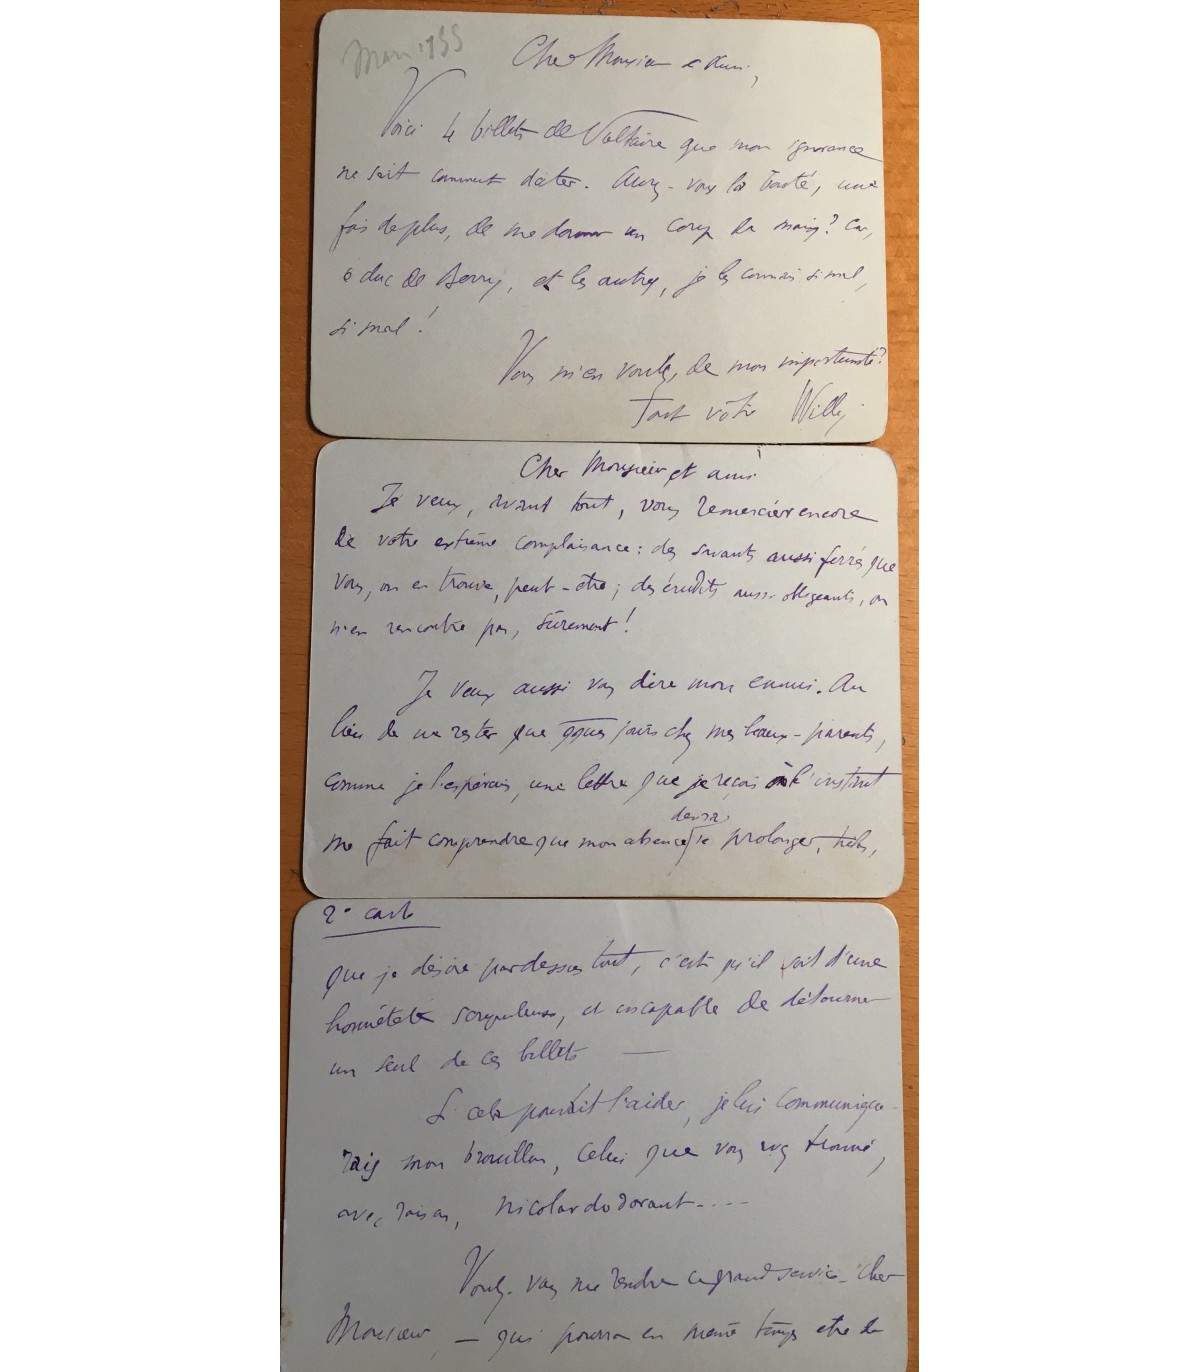 Mars 1933
Cher Monsieur et Ami,
Voici 4 billets de Voltaire que mon ignorance
ne sait comment dater. Aurez-vous la bonté, une
fois de plus, de me donner un coup de main? Car,
ô duc de Berry, et les autres, je les connais si mal,
si mal!
Vous m'en voulez, de mon importunité?
Tout vôtre Willy
Cher Monsieur et ami
Je veux, avant tout, vous remercier encore
de votre extrême complaisance: des savants aussi ferrés que
vous, on en trouve, peut-être; des érudits aussi obligeants, on
n'en rencontre pas, sûrement!
Je veux aussi vous dire mon ennui. Au
lieu de ne rester que qques jours chez mes beaux-parents,
comme je l'espérais, une lettre que je reçois à l'instant
me fait comprendre que mon absence devra se prolonger, hélas,
2e carte
que je désire par dessus tout, c'est qu'il soit d'une
honnêteté scrupuleuse, et incapable de détourner
un seul de ces billets —
Si cela pouvait l'aider, je lui communique-
rais mon brouillon, celui que vous avez trouvé,
avec raison, nicolardodorant....
Voulez-vous me rendre ce grand service, cher
Monsieur, — qui pourra en même temps être